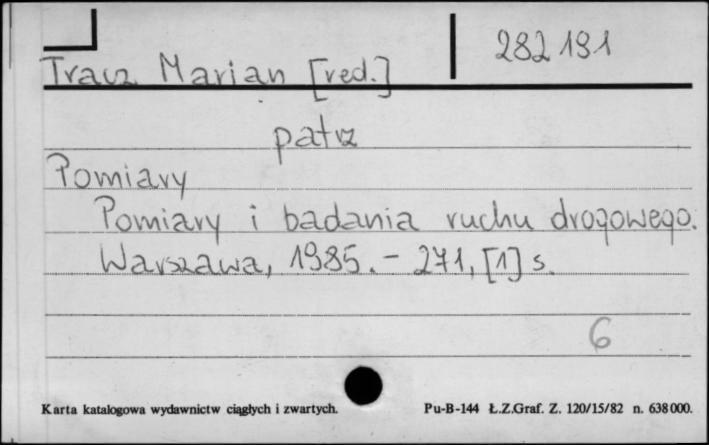 282 191
Tracz Marian [red.]
patrz
Pomiary
Pomiary i badania ruchu drogowego.
Warszawa, 1985. - 271, [1] s.
6
Karta katalogowa wydawnictw ciągłych i zwartych. Pu-B-144 Ł.Z.Graf. Z. 120/15/82 n. 638000.